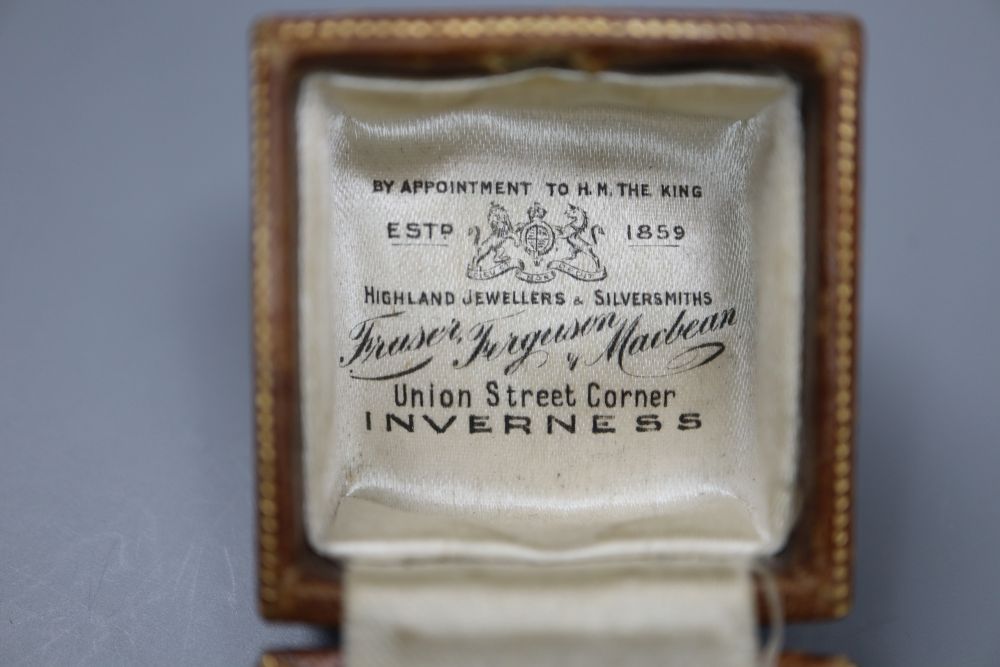 BY APPOINTMENT TO H.M. THE KING
ESTD 1859
HIGHLAND JEWELLERS & SILVERSMITHS
Fraser, Ferguson & Macbean
Union Street Corner
INVERNESS